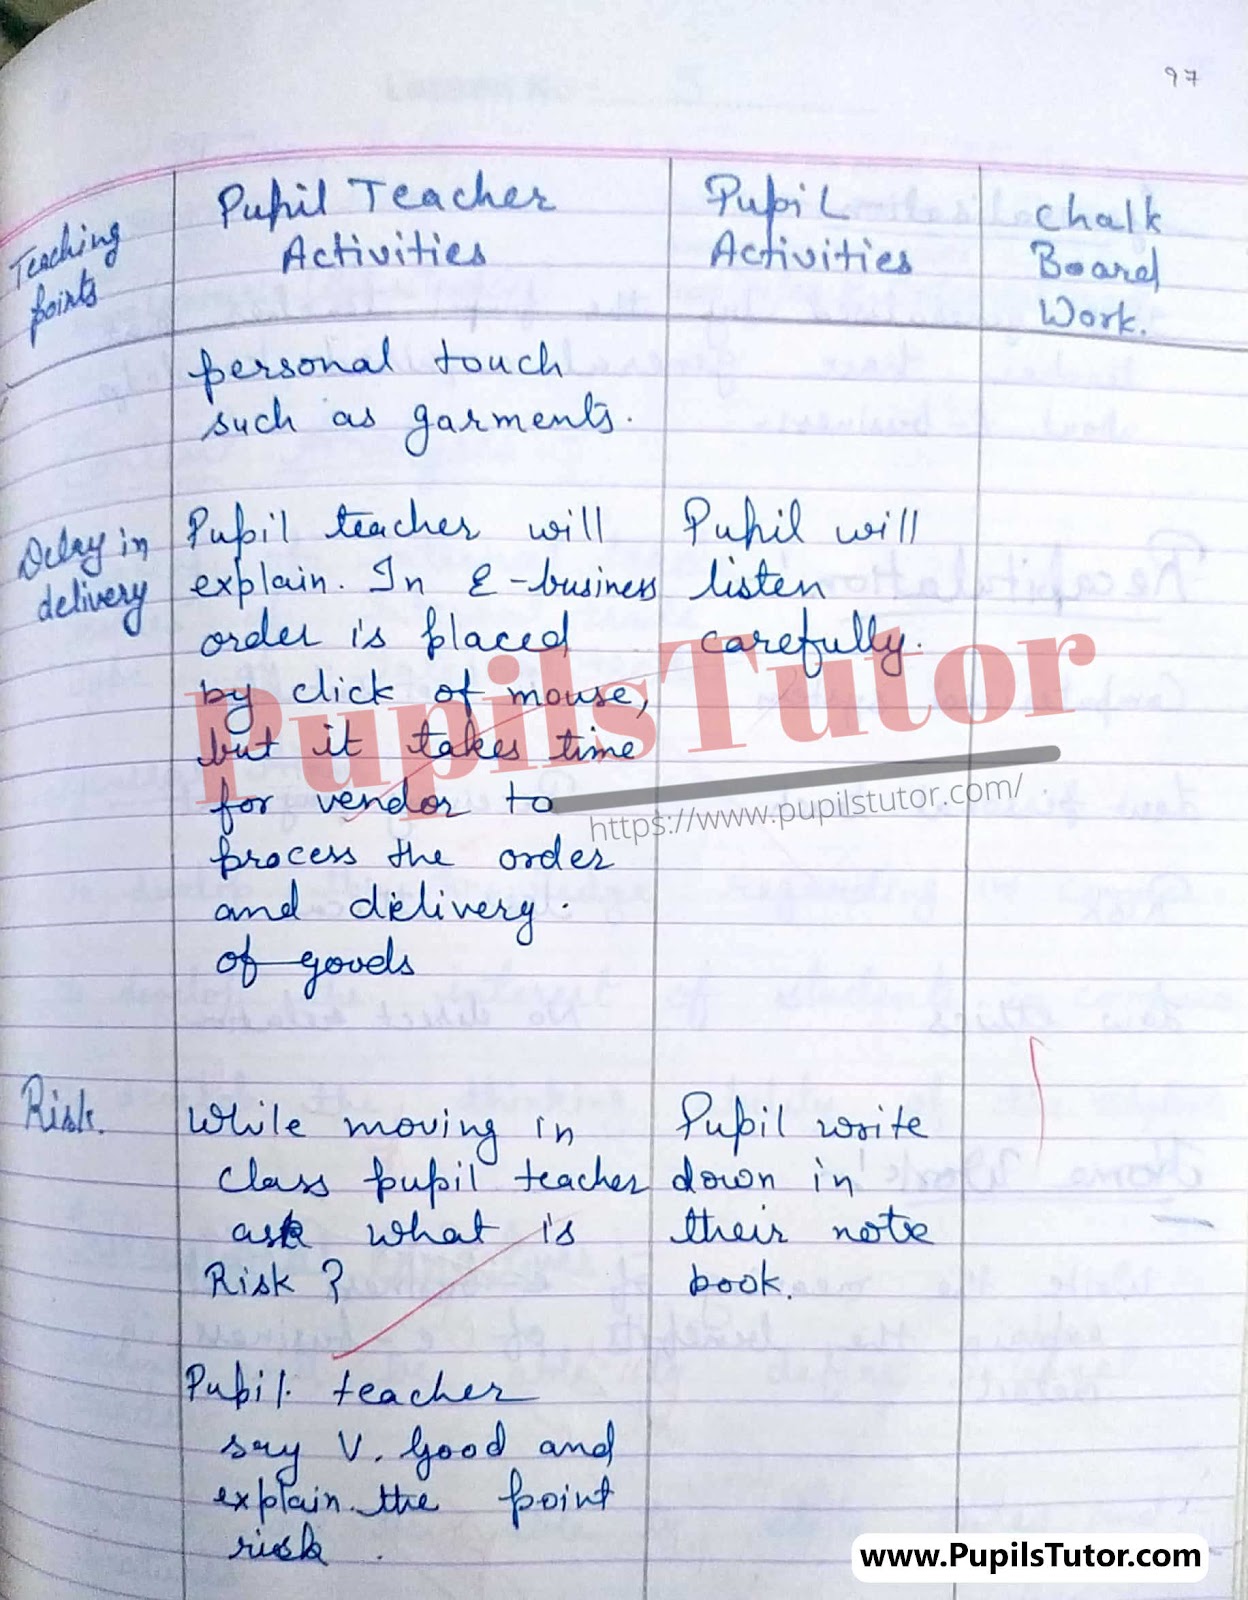 97
Teaching points
Pupil Teacher
Activities
Pupil
Activities
Chalk
Board
Work.
personal touch
such as garments.
Delay in
delivery
Pupil teacher will
explain. In E-business
order is placed
by click of mouse,
but it takes time
for vendor to
process the order
and delivery.
of goods
Pupil will
listen
carefully.
PupilsTutor
https://www.pupilstutor.com/
Risk.
While moving in
class pupil teacher
ask what is
Risk?
Pupil write
down in
their note
book.
Pupil teacher
say V. Good and
explain the point
risk.
www.PupilsTutor.com